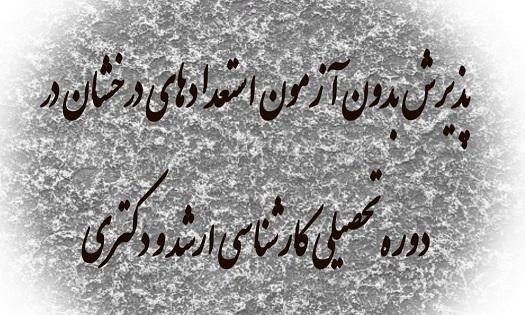 پذیرش بدون آزمون استعدادهای درخشان در
دوره تحصیلی کارشناسی ارشد و دکتری